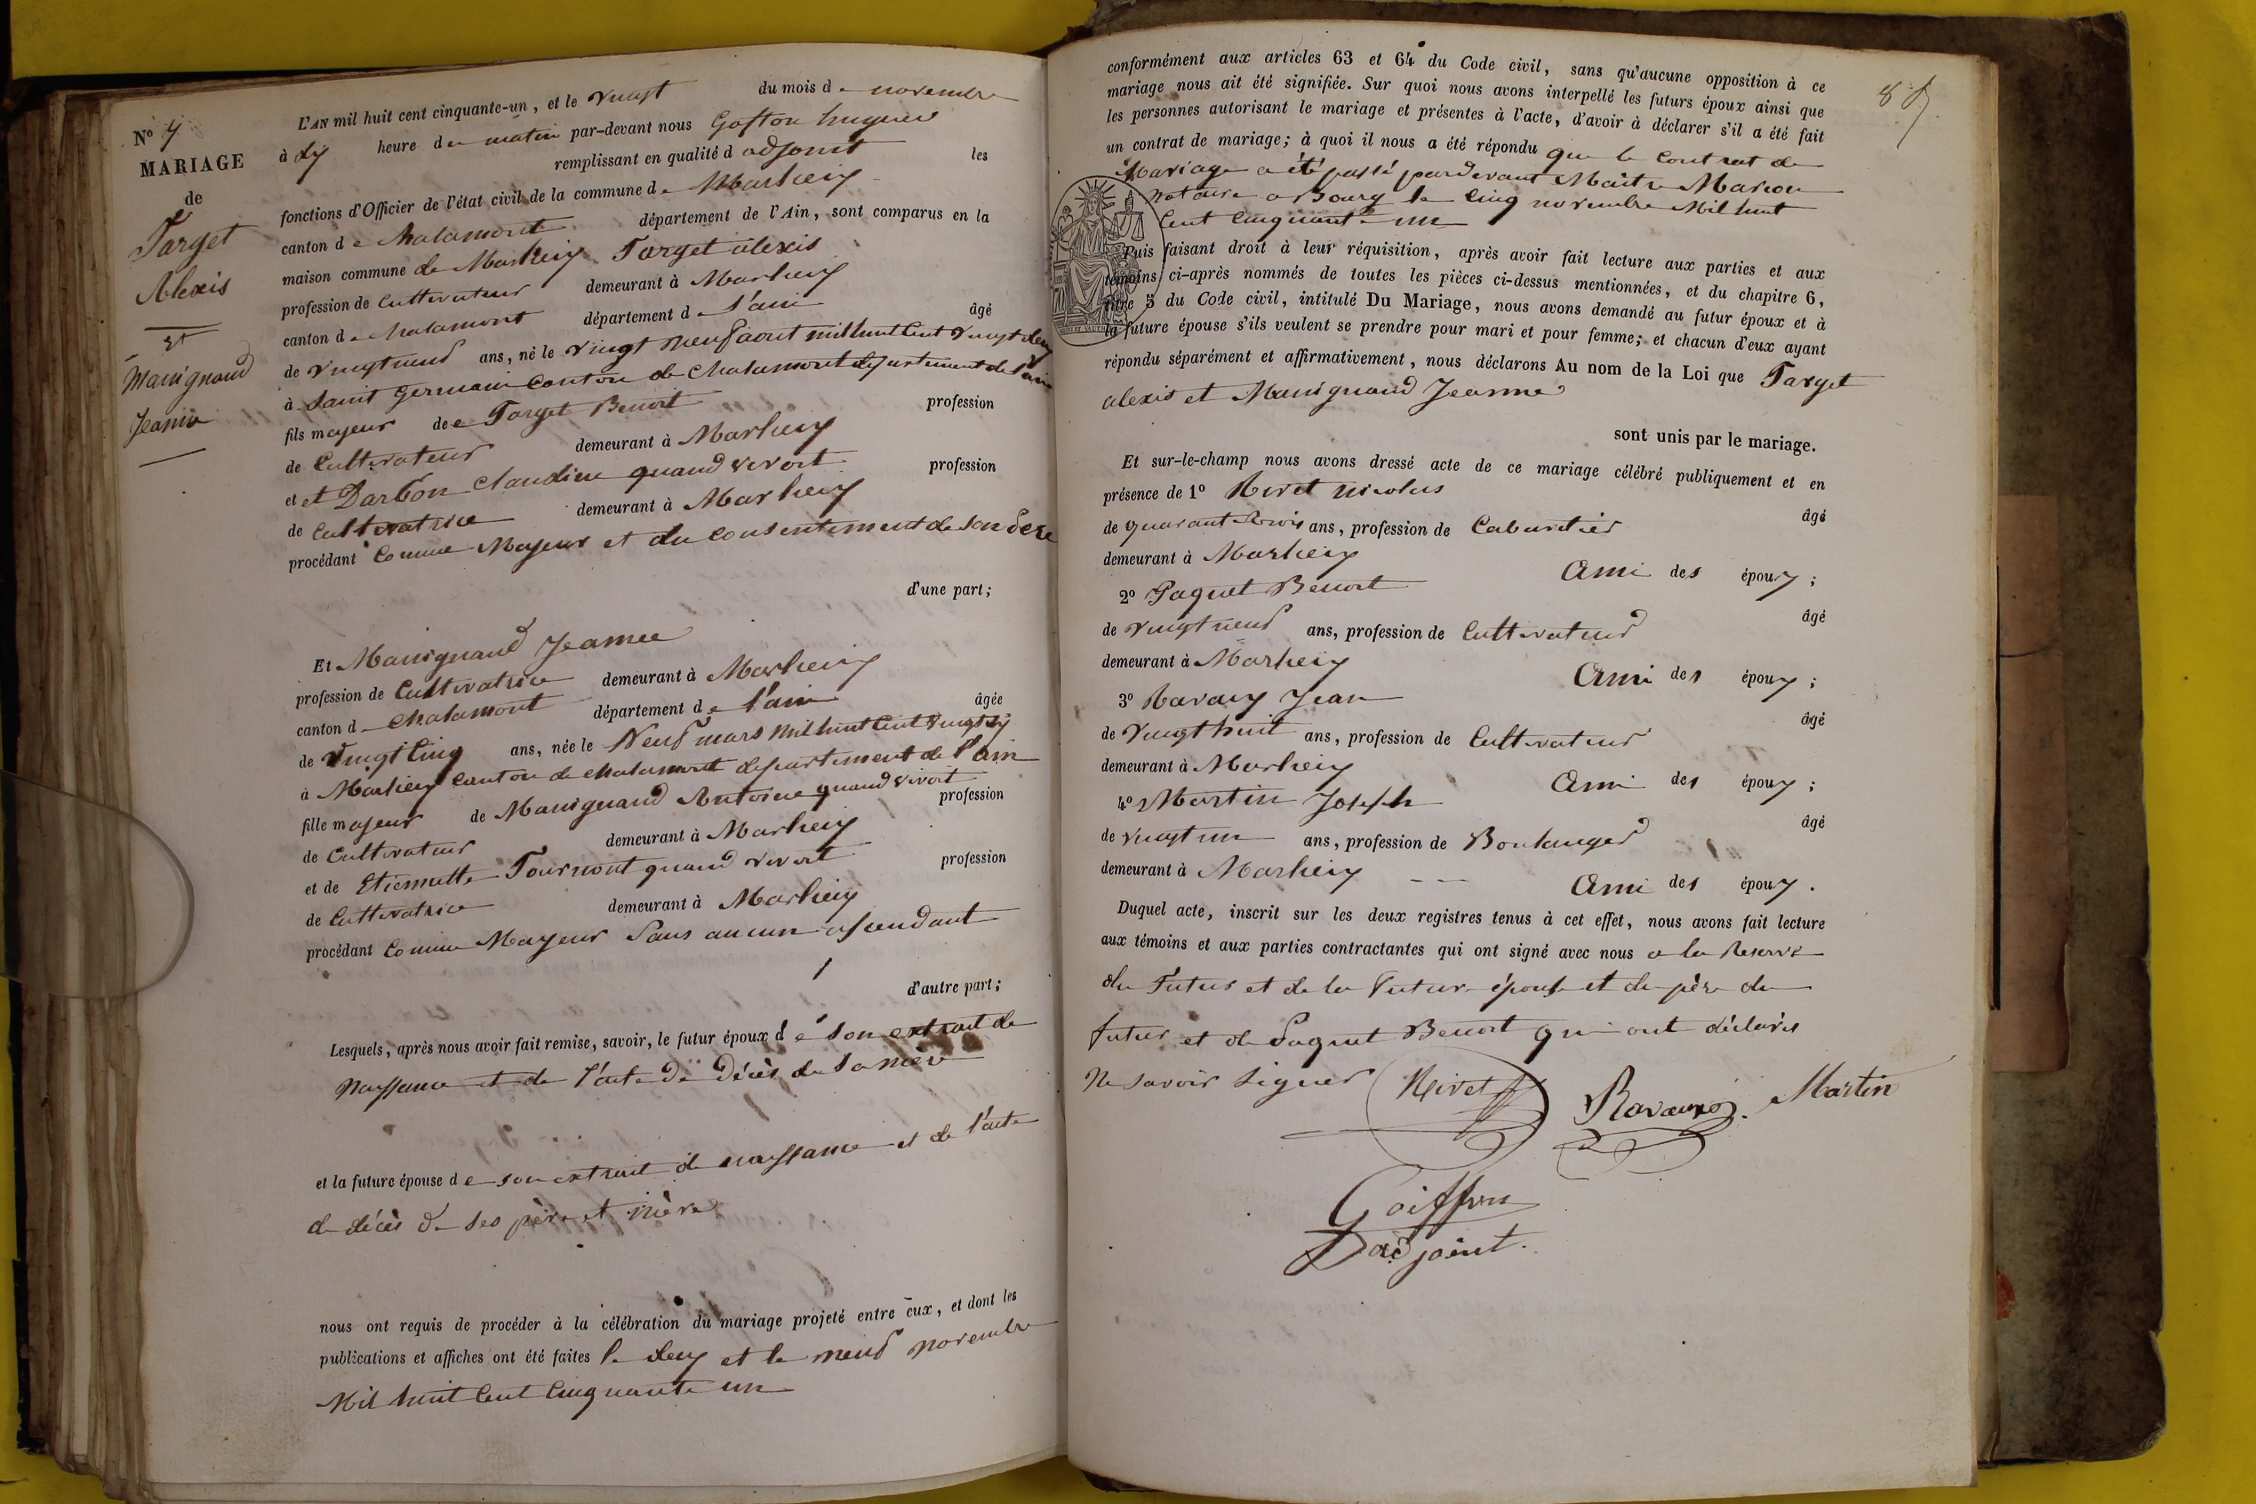 L'AN mil huit cent cinquante-un, et le vingt du mois de novembre
à dix heure du matin par-devant nous hugues
remplissant en qualité d adjoint les
fonctions d'Officier de l'état civil de la commune de Marlieux
canton de Chalamont département de l'Ain, sont comparus en la
maison commune de Marlieux Target alexis
profession de Cultivateur demeurant à Marlieux
canton de Chalamont département de l'ain âgé
de vingt neuf ans, né le vingt neuf aout mil huit Cent vingt deux
à Saint germain Canton de Chalamont département de l'ain
fils majeur de Target Benoit profession
de Cultivateur demeurant à Marlieux
et et Darbon Claudine quand vivoit profession
de Cultivatrice demeurant à Marlieux
procédant Comme Majeur et du consentement de son père
d'une part;
Et Manignand Jeanne
profession de Cultivatrice demeurant à Marlieux
canton de Chalamont département de l'ain âgée
de Vingt Cinq ans, née le Neuf mars Mil huit Cent vingt six
à Marlieux Canton de Chalamont département de l'ain
fille majeur de Manignand Antoine quand vivoit profession
de Cultivateur demeurant à Marlieux
et de Etiennette quand vivoit profession
de Cultivatrice demeurant à Marlieux
procédant Comme Mayeur Sans aucun assendant
d'autre part;
Lesquels, après nous avoir fait remise, savoir, le futur époux de son extrait de
Naissance et de l'acte de décès de sa mère
et la future épouse de son extrait de naissance et de l'acte
de décès de ses père et mère
nous ont requis de procéder à la célébration du mariage projeté entre eux, et dont les
publications et affiches ont été faites le deux et le neuf novembre
Mil huit Cent Cinquante un
N° 7
MARIAGE
de
Target
Alexis
et
Manignand
Jeanne
87
conformément aux articles 63 et 64 du Code civil, sans qu'aucune opposition à ce
mariage nous ait été signifiée. Sur quoi nous avons interpellé les futurs époux ainsi que
les personnes autorisant le mariage et présentes à l'acte, d'avoir à déclarer s'il a été fait
un contrat de mariage; à quoi il nous a été répondu que le Contrat de
Mariage a été passé pardevant Maitre Marion
Notaire a Bourg le Cinq novembre Mil huit
Cent Cinquante un
Puis faisant droit à leur réquisition, après avoir fait lecture aux parties et aux
témoins ci-après nommés de toutes les pièces ci-dessus mentionnées, et du chapitre 6,
titre 5 du Code civil, intitulé Du Mariage, nous avons demandé au futur époux et à
la future épouse s'ils veulent se prendre pour mari et pour femme; et chacun d'eux ayant
répondu séparément et affirmativement, nous déclarons Au nom de la Loi que Target
alexis et Manignand Jeanne
sont unis par le mariage.
Et sur-le-champ nous avons dressé acte de ce mariage célébré publiquement et en
présence de 1° Nivet nicolas âgé
de quarant trois ans, profession de Cabaretier
demeurant à Marlieux Ami des époux;
2° Paquet Benoit âgé
de vingt neuf ans, profession de Cultivateur
demeurant à Marlieux Ami des époux;
3° Ravaux Jean âgé
de Vingt huit ans, profession de Cultivateur
demeurant à Marlieux Ami des époux;
4° Martin Joseph âgé
de vingt un ans, profession de Boulanger
demeurant à Marlieux Ami des époux.
Duquel acte, inscrit sur les deux registres tenus à cet effet, nous avons fait lecture
aux témoins et aux parties contractantes qui ont signé avec nous a la Reserve
du Futur et de la Future épouse et du père du
futur et de Paquet Benoit qui ont déclarés
Ne savoir signer Nivet Ravaux Martin
Goiffon
adjoint.